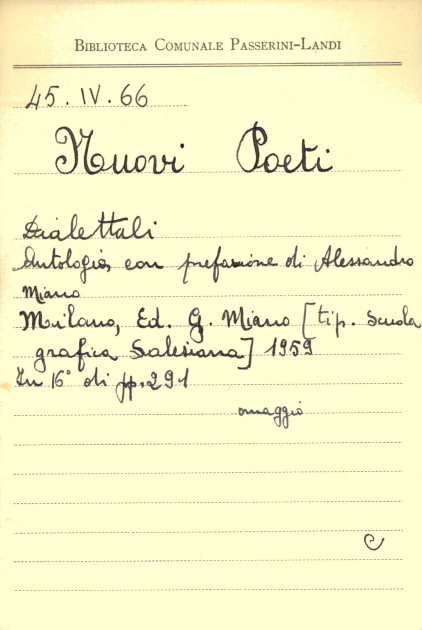 BIBLIOTECA COMUNALE PASSERINI-LANDI
45.IV.66
Nuovi Poeti
Dialettali
Antologia con prefazione di Alessandro
Miano
Milano, Ed. G. Miano [tip. Scuola
grafica Salesiana] 1959
In 16° di pp. 291
omaggio
C